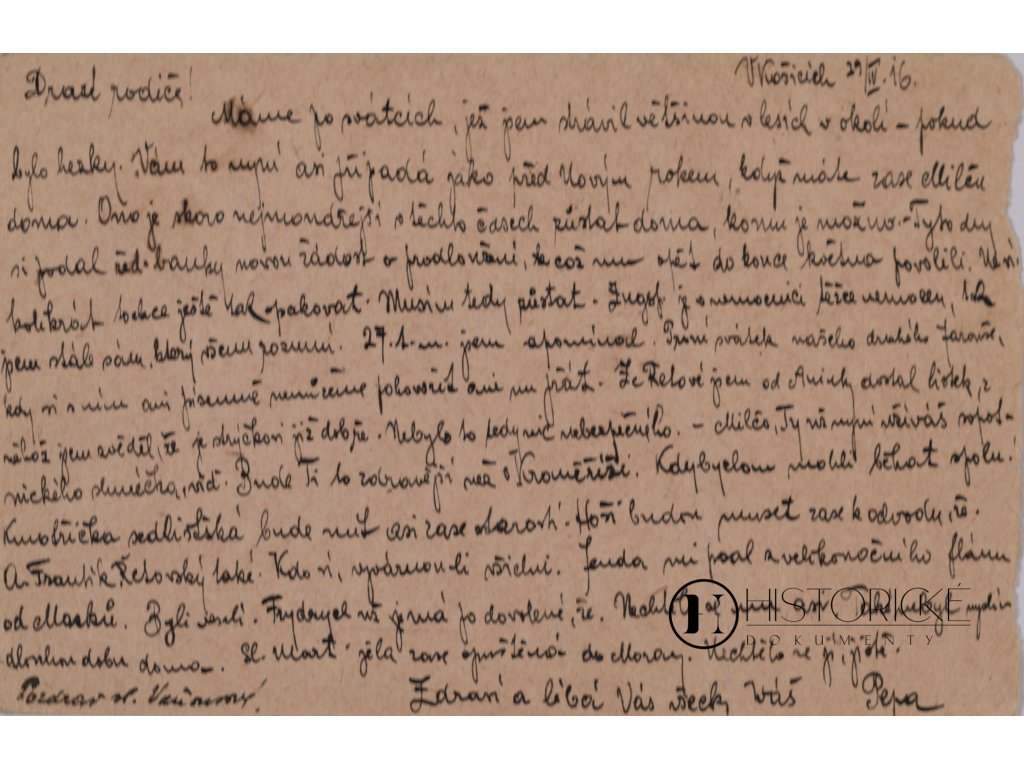 V Košicích 29/IV. 16.
Drazí rodiče!
Máme po svátcích, jež jsem strávil většinou v lesích v okolí – pokud
bylo hezky. Vám to nyní asi připadá jako před Novým rokem, když máte zase Milču
doma. Ono je skoro nejmoudřejší v těchto časech zůstat doma, komu je možno. – Tyto dny
si podal řed. banky novou žádost o prodloužení, což mu opět do konce května povolili.
kolikrát to chce ještě tak opakovat. Musím tedy zůstat. je v nemocnici těžce nemocen,
jsem stále sám, který všemu rozumí. 27. t. m. jsem vzpomínal. První svátek našeho druhého Jarouše,
kdy si s ním ani písemně nemůžeme pohovořit ani mu přát. Ze Řetové jsem od Aninky dostal lístek, z
něhož jsem zvěděl, že je strýčkovi již dobře. Nebylo to tedy nic nebezpečného. – Milčo, Ty už nyní užíváš
sluníčka, viď. Bude Ti to zdravější než v Kroměříži. Kdybychom mohli běhat spolu!
Kmotřička sedlišťská bude mít asi zase starosti. Hoši budou muset zase k odvodu, že.
A Frantík Řetovský také. Kdo ví, vyváznou-li všichni. Jenda mi psal z velikonočního flámu
od Macků. Byli veselí. Frydrych už je má po dovolené, že. Nechtělo se mu asi.
dlouhou dobu doma. Sl. Mart. jela zase opuštěná do Moravy. Nechtělo se jí, ještě.
Pozdrav sl.
Zdraví a líbá Vás všecky Váš Pepa
HISTORICKÉ
DOKUMENTY